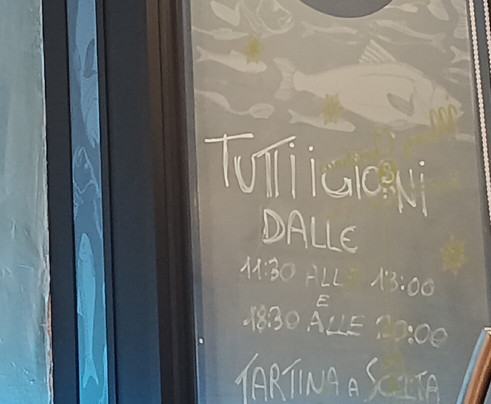 TUTTI i GIORNI
DALLE
11:30 ALLE 13:00
E
18:30 ALLE 20:00
TARTINA A SCELTA